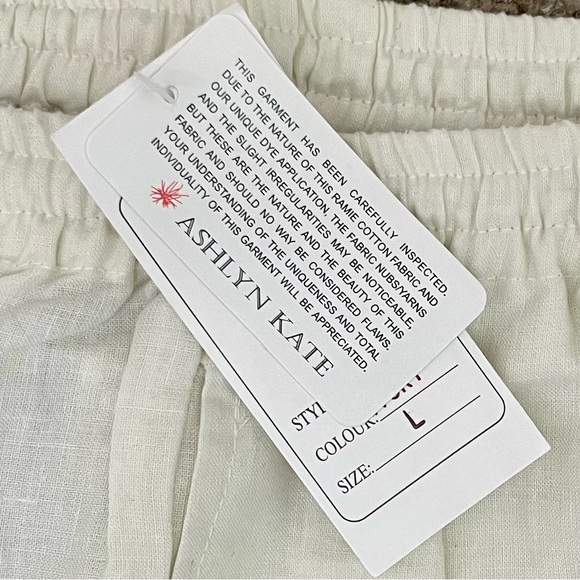 THIS GARMENT HAS BEEN CAREFULLY INSPECTED.
DUE TO THE NATURE OF THIS RAMIE COTTON FABRIC AND
OUR UNIQUE DYE APPLICATION, THE FABRIC NUBS/YARNS
AND THE SLIGHT IRREGULARITIES MAY BE NOTICEABLE.
BUT THESE ARE THE NATURE AND THE BEAUTY OF THIS
FABRIC AND SHOULD NO WAY BE CONSIDERED FLAWS.
YOUR UNDERSTANDING OF THE UNIQUENESS AND TOTAL
INDIVIDUALITY OF THIS GARMENT WILL BE APPRECIATED.
ASHLYN KATE
COLOUR:
SIZE: L